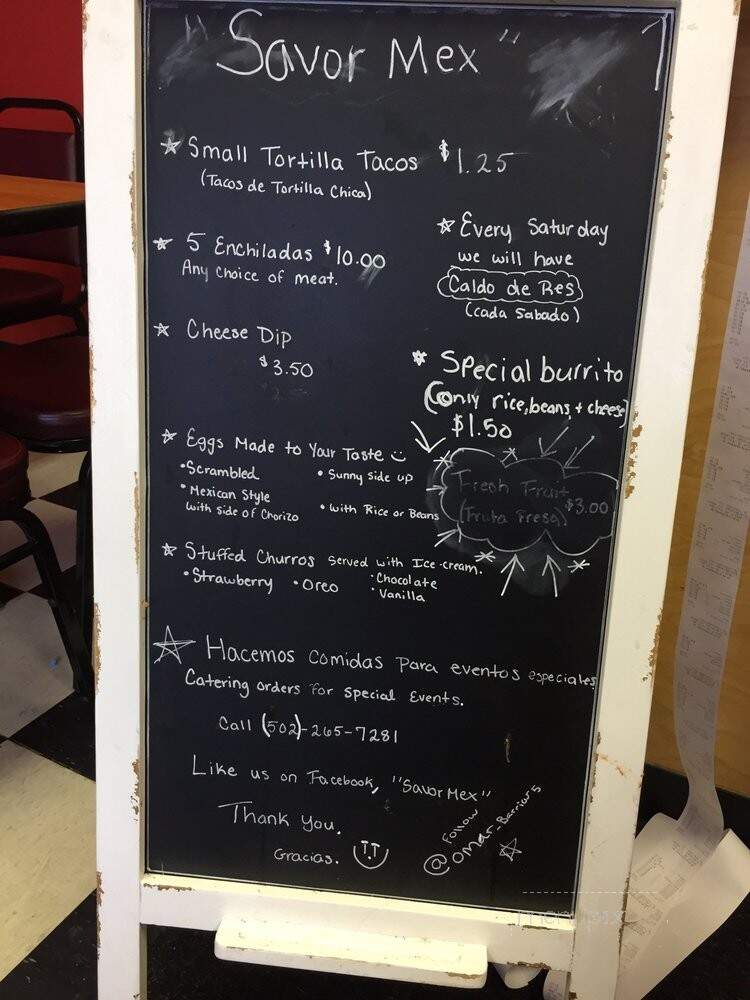 "Savor Mex"
Small Tortilla Tacos $1.25
(Tacos de Tortilla Chica)
5 Enchiladas $10.00
Any choice of meat.
Cheese Dip
$3.50
Every Saturday
we will have
Caldo de Res
(cada Sabado)
Special burrito
(only rice, beans, + cheese)
$1.50
Eggs Made to Your Taste
• Scrambled • Sunny side up
• Mexican Style
with side of Chorizo • with Rice or Beans
Fresh Fruit
(Fruta Fresa) $3.00
Stuffed Churros served with Ice-cream.
• Strawberry • Oreo • Chocolate
• Vanilla
Hacemos comidas para eventos especiales
Catering orders for special Events.
Call (502)-265-7281
Like us on Facebook, "Savor Mex"
Thank you.
Gracias.
Follow
@omar_Barrios